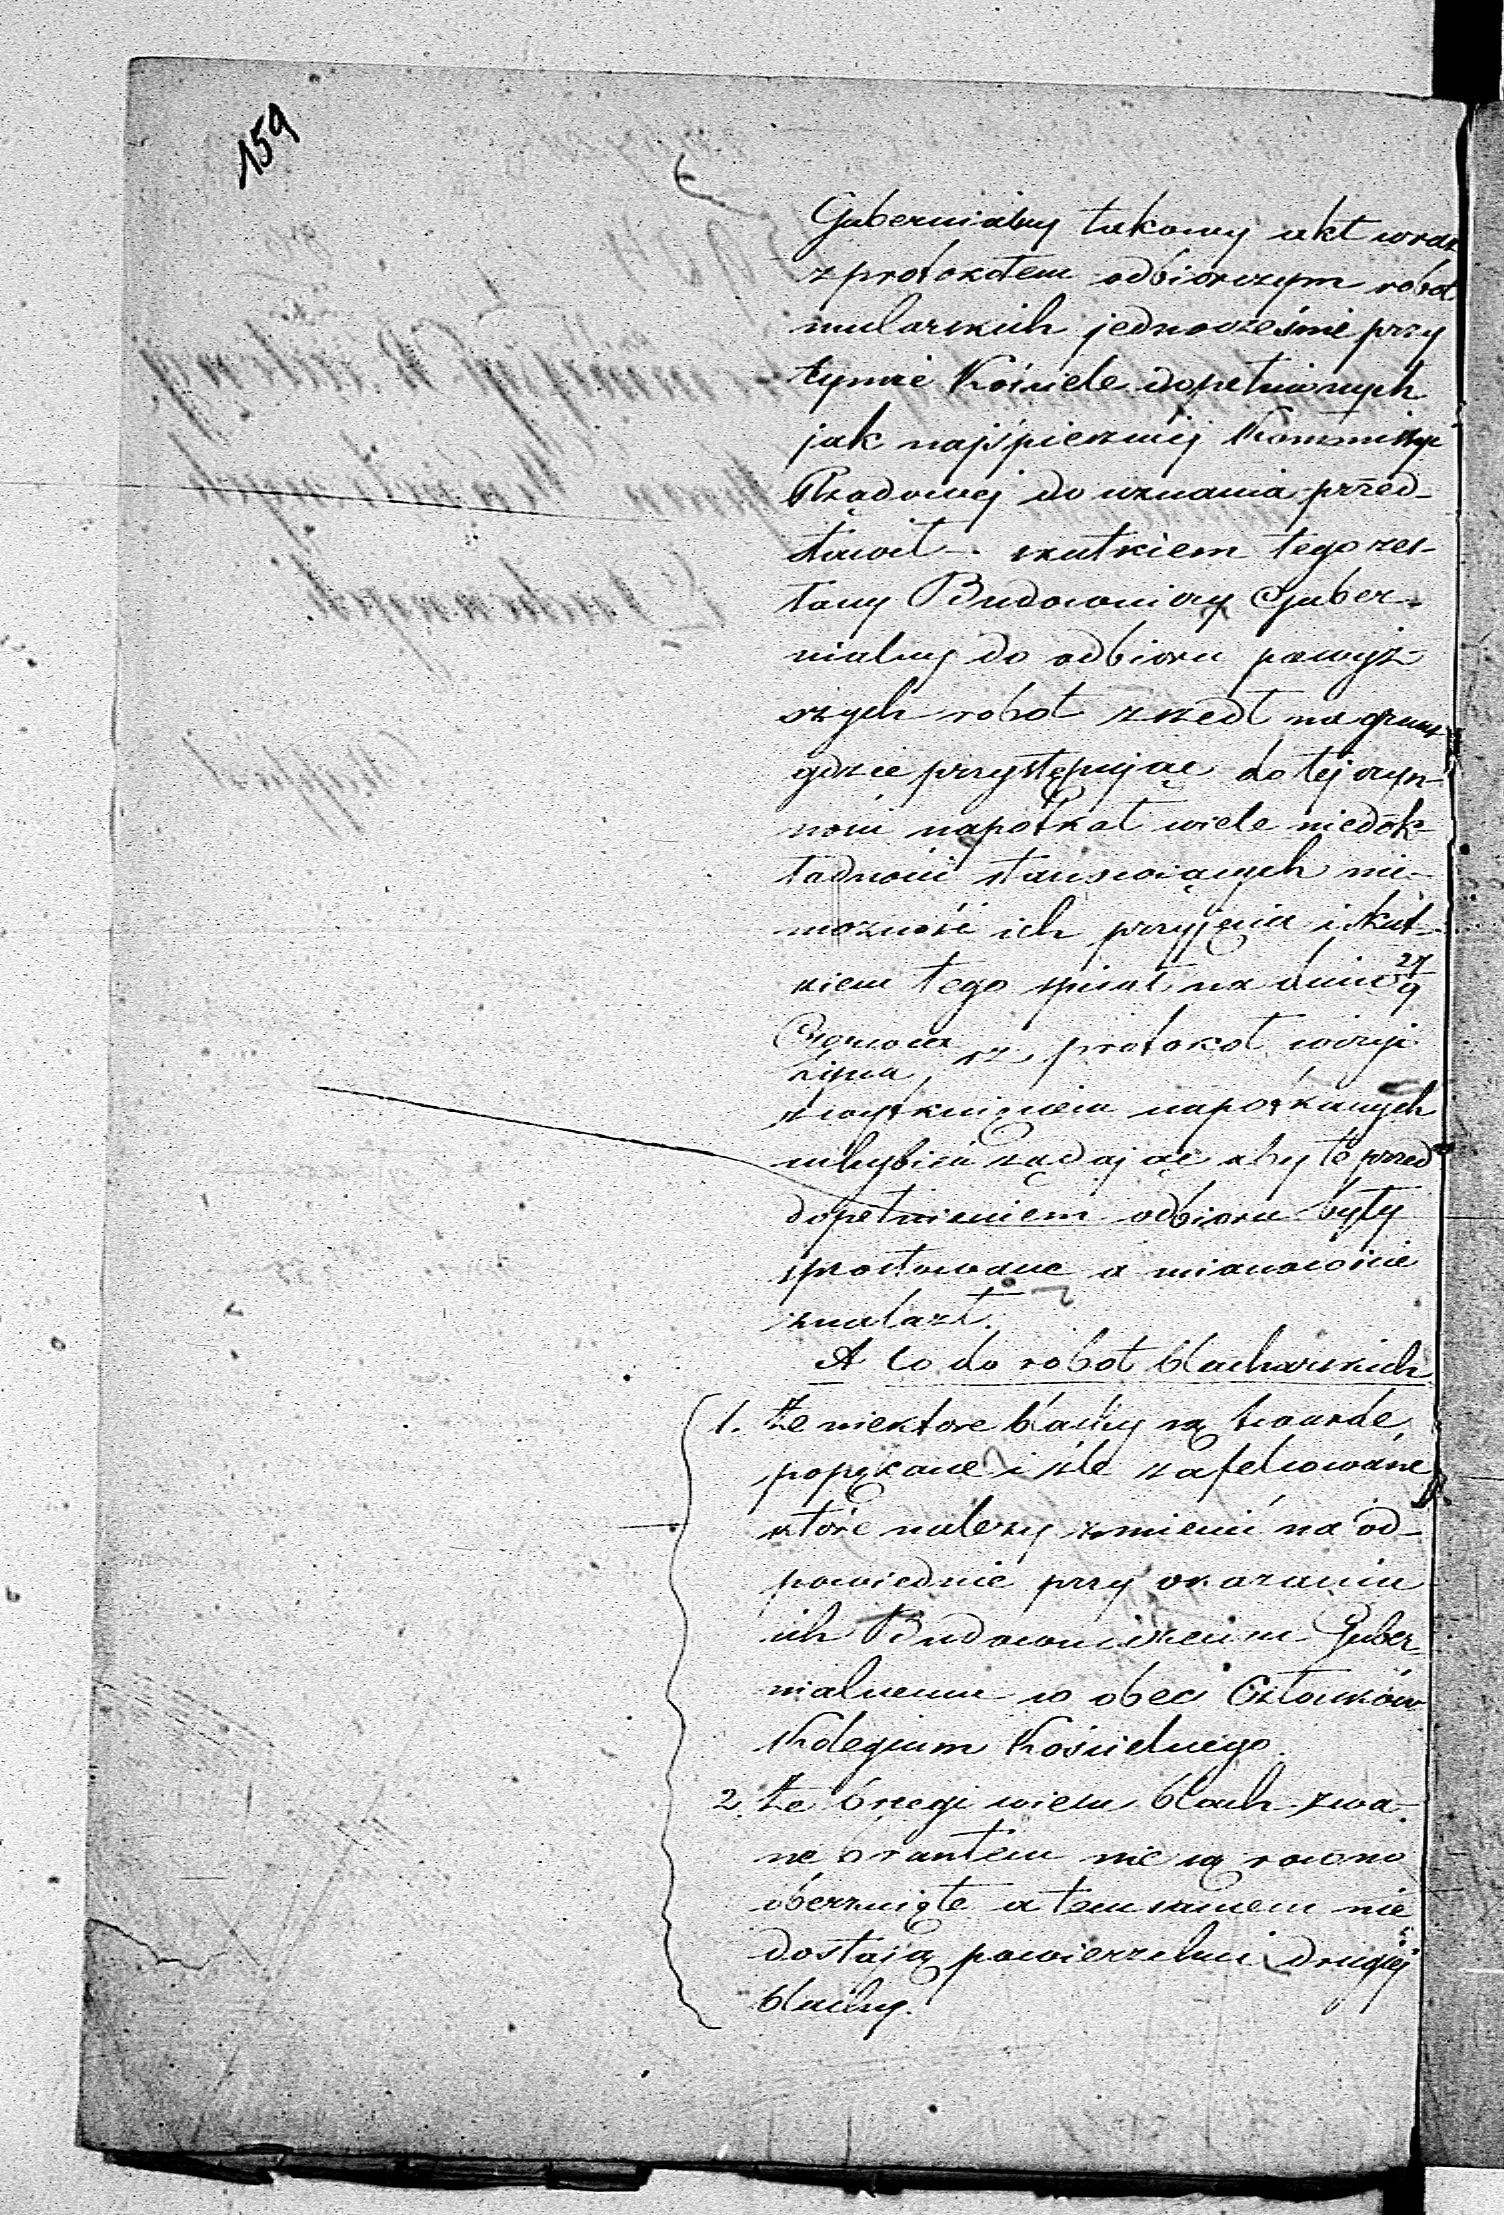 159
Gubernialny takowy akt wraz
z protokołem odbiorczym robot
mularskich jednocześnie przy
tymże Kościele dopełnionych
jak najśpieszniej Kommissyi
Rządowej do uznania przed-
stawił – skutkiem tego zes-
łany Budowniczy Guber-
nialny do odbioru powyż-
szych robot zszedł na grunt
gdzie przystępując do tej czyn-
ności napotkał wiele niedok-
ładności stanowiących nie-
możność ich przyjęcia i skut-
kiem tego spisał na dniu 27/9
Czerwca/Lipca rz protokół rewizyi
z wytknięciem napotkanych
uchybień żądając aby te przed
dopełnieniem odbioru były
sprostowane a mianowicie
znalazł.
A co do robot blacharskich
1. Że niektore blachy są twarde,
popękane i źle zafelcowane
które należy zmienić na od-
powiednie przy okazaniu
ich Budowniczemu Guber-
nialnemu w obec Członków
Kolegium Kościelnego.
2. Że brzegi wielu blach zwa-
ne brantem nie są rowno
oberznięte a tem samem nie
dostają powierzchni drugiej
blachy.